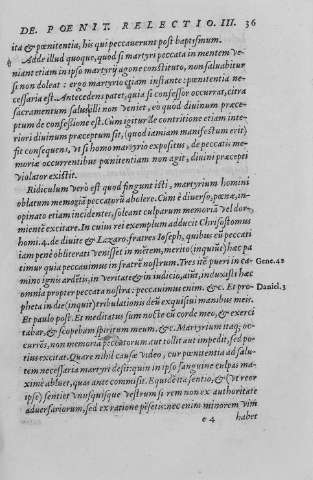 DE. POENIT. RELECTIO. III. 36
ita & pœnitentia, his qui peccauerunt post baptismum.
Adde illud quoque, quod si martyri peccata in mentem ve-
niant etiam in ipso martyrij agone constituto, non saluabitur
si non doleat: ergo martyrio etiam instante: pœnitentia ne-
cessaria est. Antecedens patet, quia si confessor occurrat, citra
sacramentum saluus illi non veniet, eò quod diuinum præce-
ptum de confessione est. Cum igitur de contritione etiam inte-
riori diuinum præceptum sit, (quod iamiam manifestum erit)
fit consequens, vt si homo martyrio expositus, de peccatis me-
moriæ occurrentibus pœnitentiam non agit, diuini præcepti
violator existit.
Ridiculum verò est quod fingunt isti, martyrium homini
oblatum memoriā peccatorū abolere. Cum è diuerso, pœnæ, in-
opinato etiam incidentes, soleant culparum memoriā vel dor-
mientē excitare. In cuius rei exemplum adducit Chrisostomus
homi. 4. de diuite & Lazaro, fratres Ioseph, quibus cū peccati
iam penè obliterati venisset in mētem, merito (inquiūt) hæc pa
timur quia peccauimus in fratrē nostrum. Tres itē pueri in ca- Gene. 42
mino ignis ardētis, in veritate & in iudicio, aiūt, induxisti hæc
omnia propter peccata nostra: peccauimus enim. &c. Et pro- Daniel. 3
pheta in die (inquit) tribulationis deū exquisiui manibus meis.
Et paulo post. Et meditatus sum nocte cū corde meo, & exerci
tabar, & scopebam spiritum meum, &c. Martyrium itaq; oc-
currēs, non memoriā peccatorum aut tollit aut impedit, sed po-
tius excitat. Quare nihil causæ video, cur pœnitentia ad salu-
tem necessaria martyri desit: quin in ipso sanguine culpas ma-
ximè abluet, quas ante commisit. Equidē ita sentio, & (vt reor
ipse) sentiet vnusquisque vestrum si rem non ex authoritate
aduersariorum, sed ex ratione pēsetis: nec enim minorem vim
e 4 habet